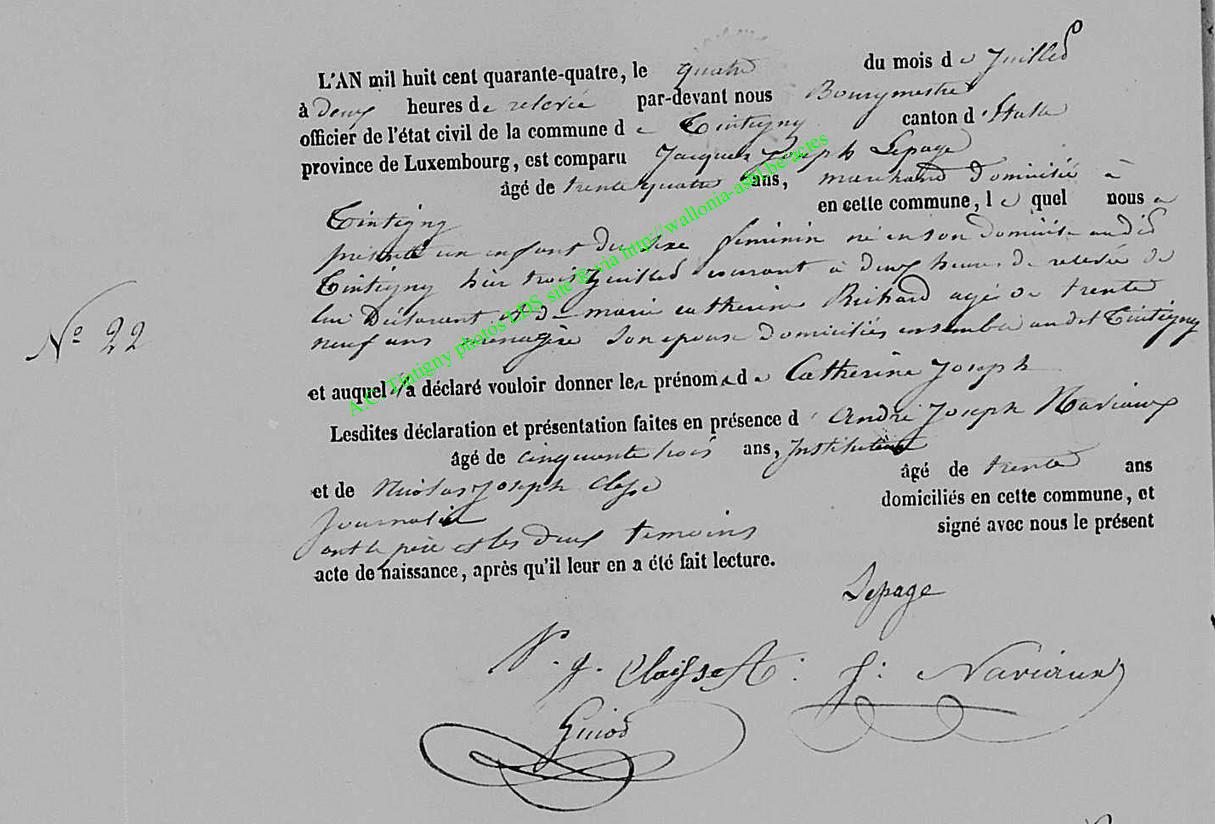 L'AN mil huit cent quarante-quatre, le quatre du mois de Juillet
à deux heures de relevée par-devant nous Bourgmestre
officier de l'état civil de la commune de Tintigny canton d'Etalle
province de Luxembourg, est comparu Jacques Joseph Lepage
âgé de trente quatre ans, marchand domicilié à
Tintigny en cette commune, lequel nous a
présenté un enfant du sexe féminin né en son domicile audit
Tintigny hier trois Juillet courant à deux heures de relevée de
lui Déclarant et de marie catherine Richard agé de trente
neuf ans ménagère son épouse domiciliés ensemble audit Tintigny
et auquel il a déclaré vouloir donner les prénoms de Catherine Joseph
Lesdites déclaration et présentation faites en présence d'André Joseph Naviaux
âgé de cinquante trois ans, Instituteur
et de Nicolas Joseph Clesse âgé de trente ans
Journalier domiciliés en cette commune, et
ont le père et les deux témoins signé avec nous le présent
acte de naissance, après qu'il leur en a été fait lecture.
N° 22
Lepage
N. j. Claisse A: J: Naviaux
A.C. Tintigny photos LDS site © via http://wallonia-asbl.be/actes